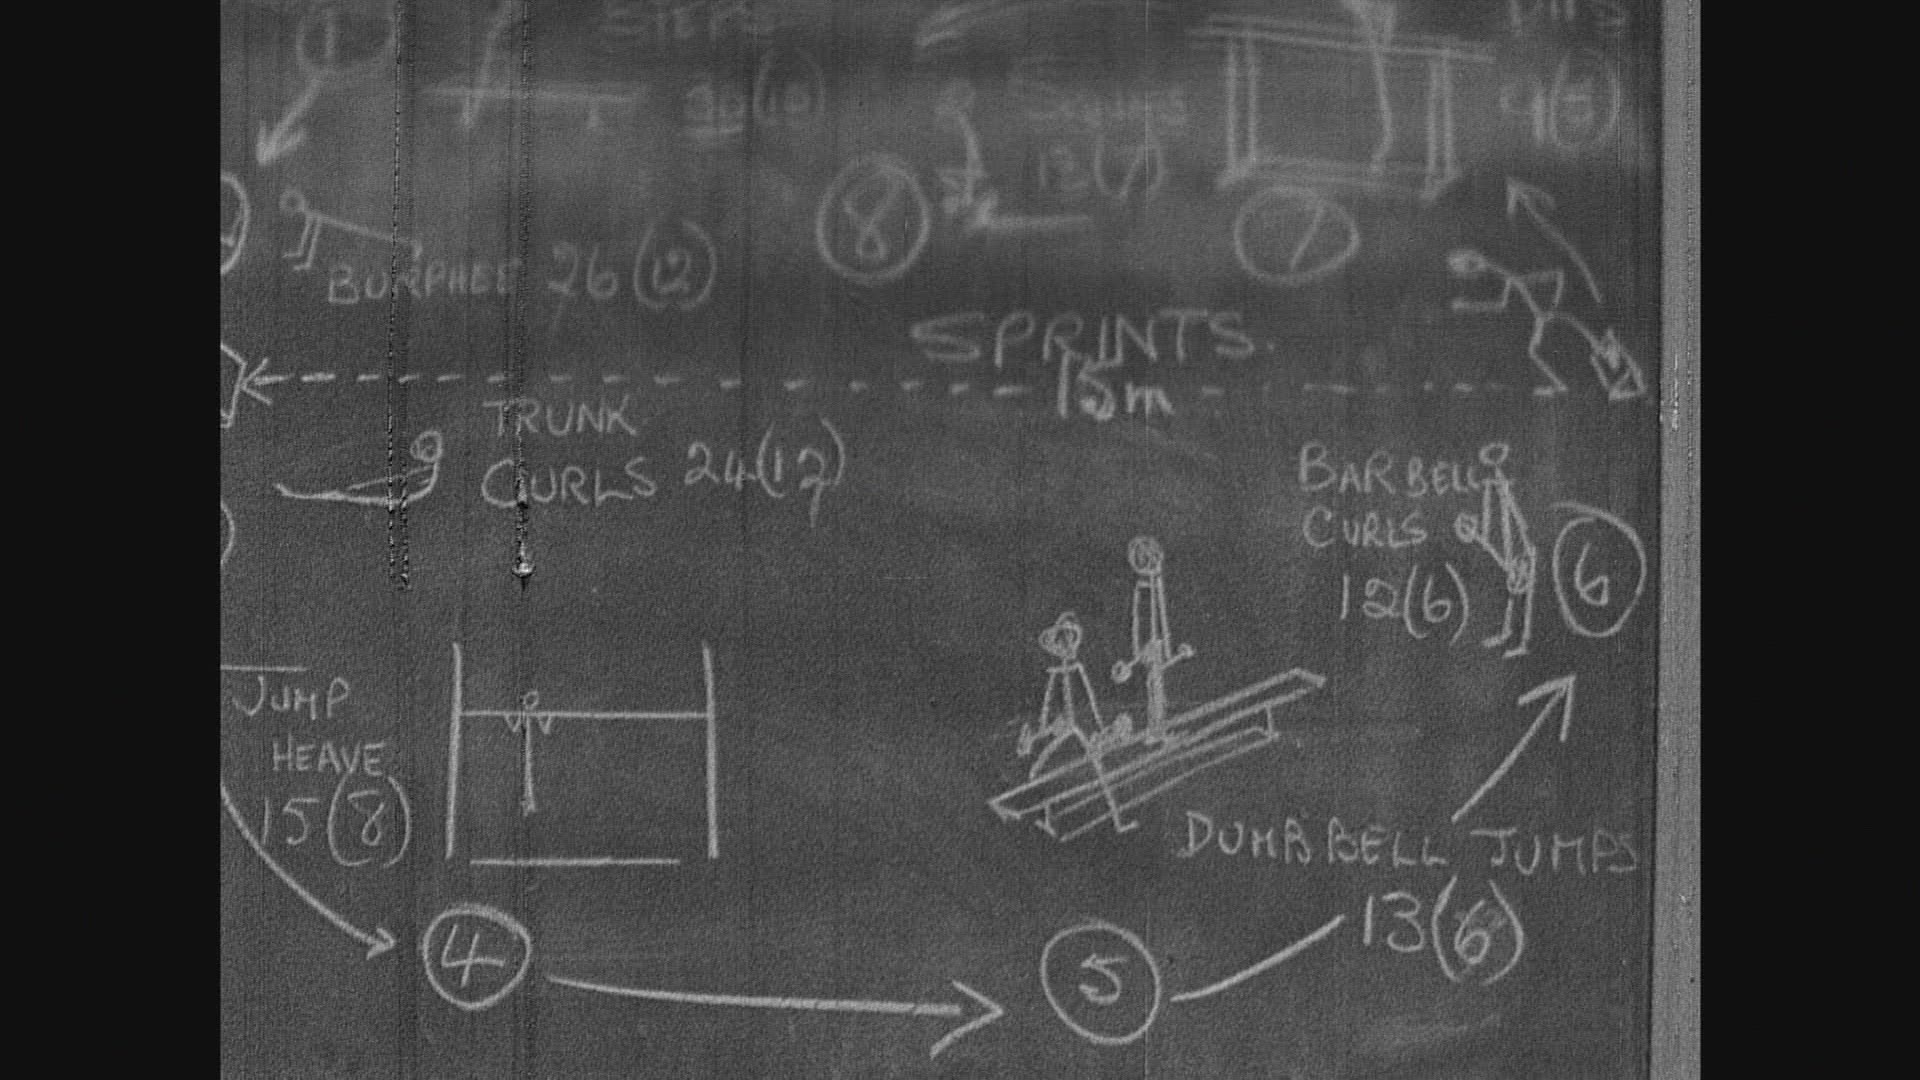 1
STEPS
DIPS
SQUATS
8
7
BURPHEE 26(12)
SPRINTS.
15m
TRUNK
CURLS 24(12)
BARBELL
CURLS
12(6)
6
JUMP
HEAVE
15(8)
DUMBBELL JUMPS
13(6)
4
5